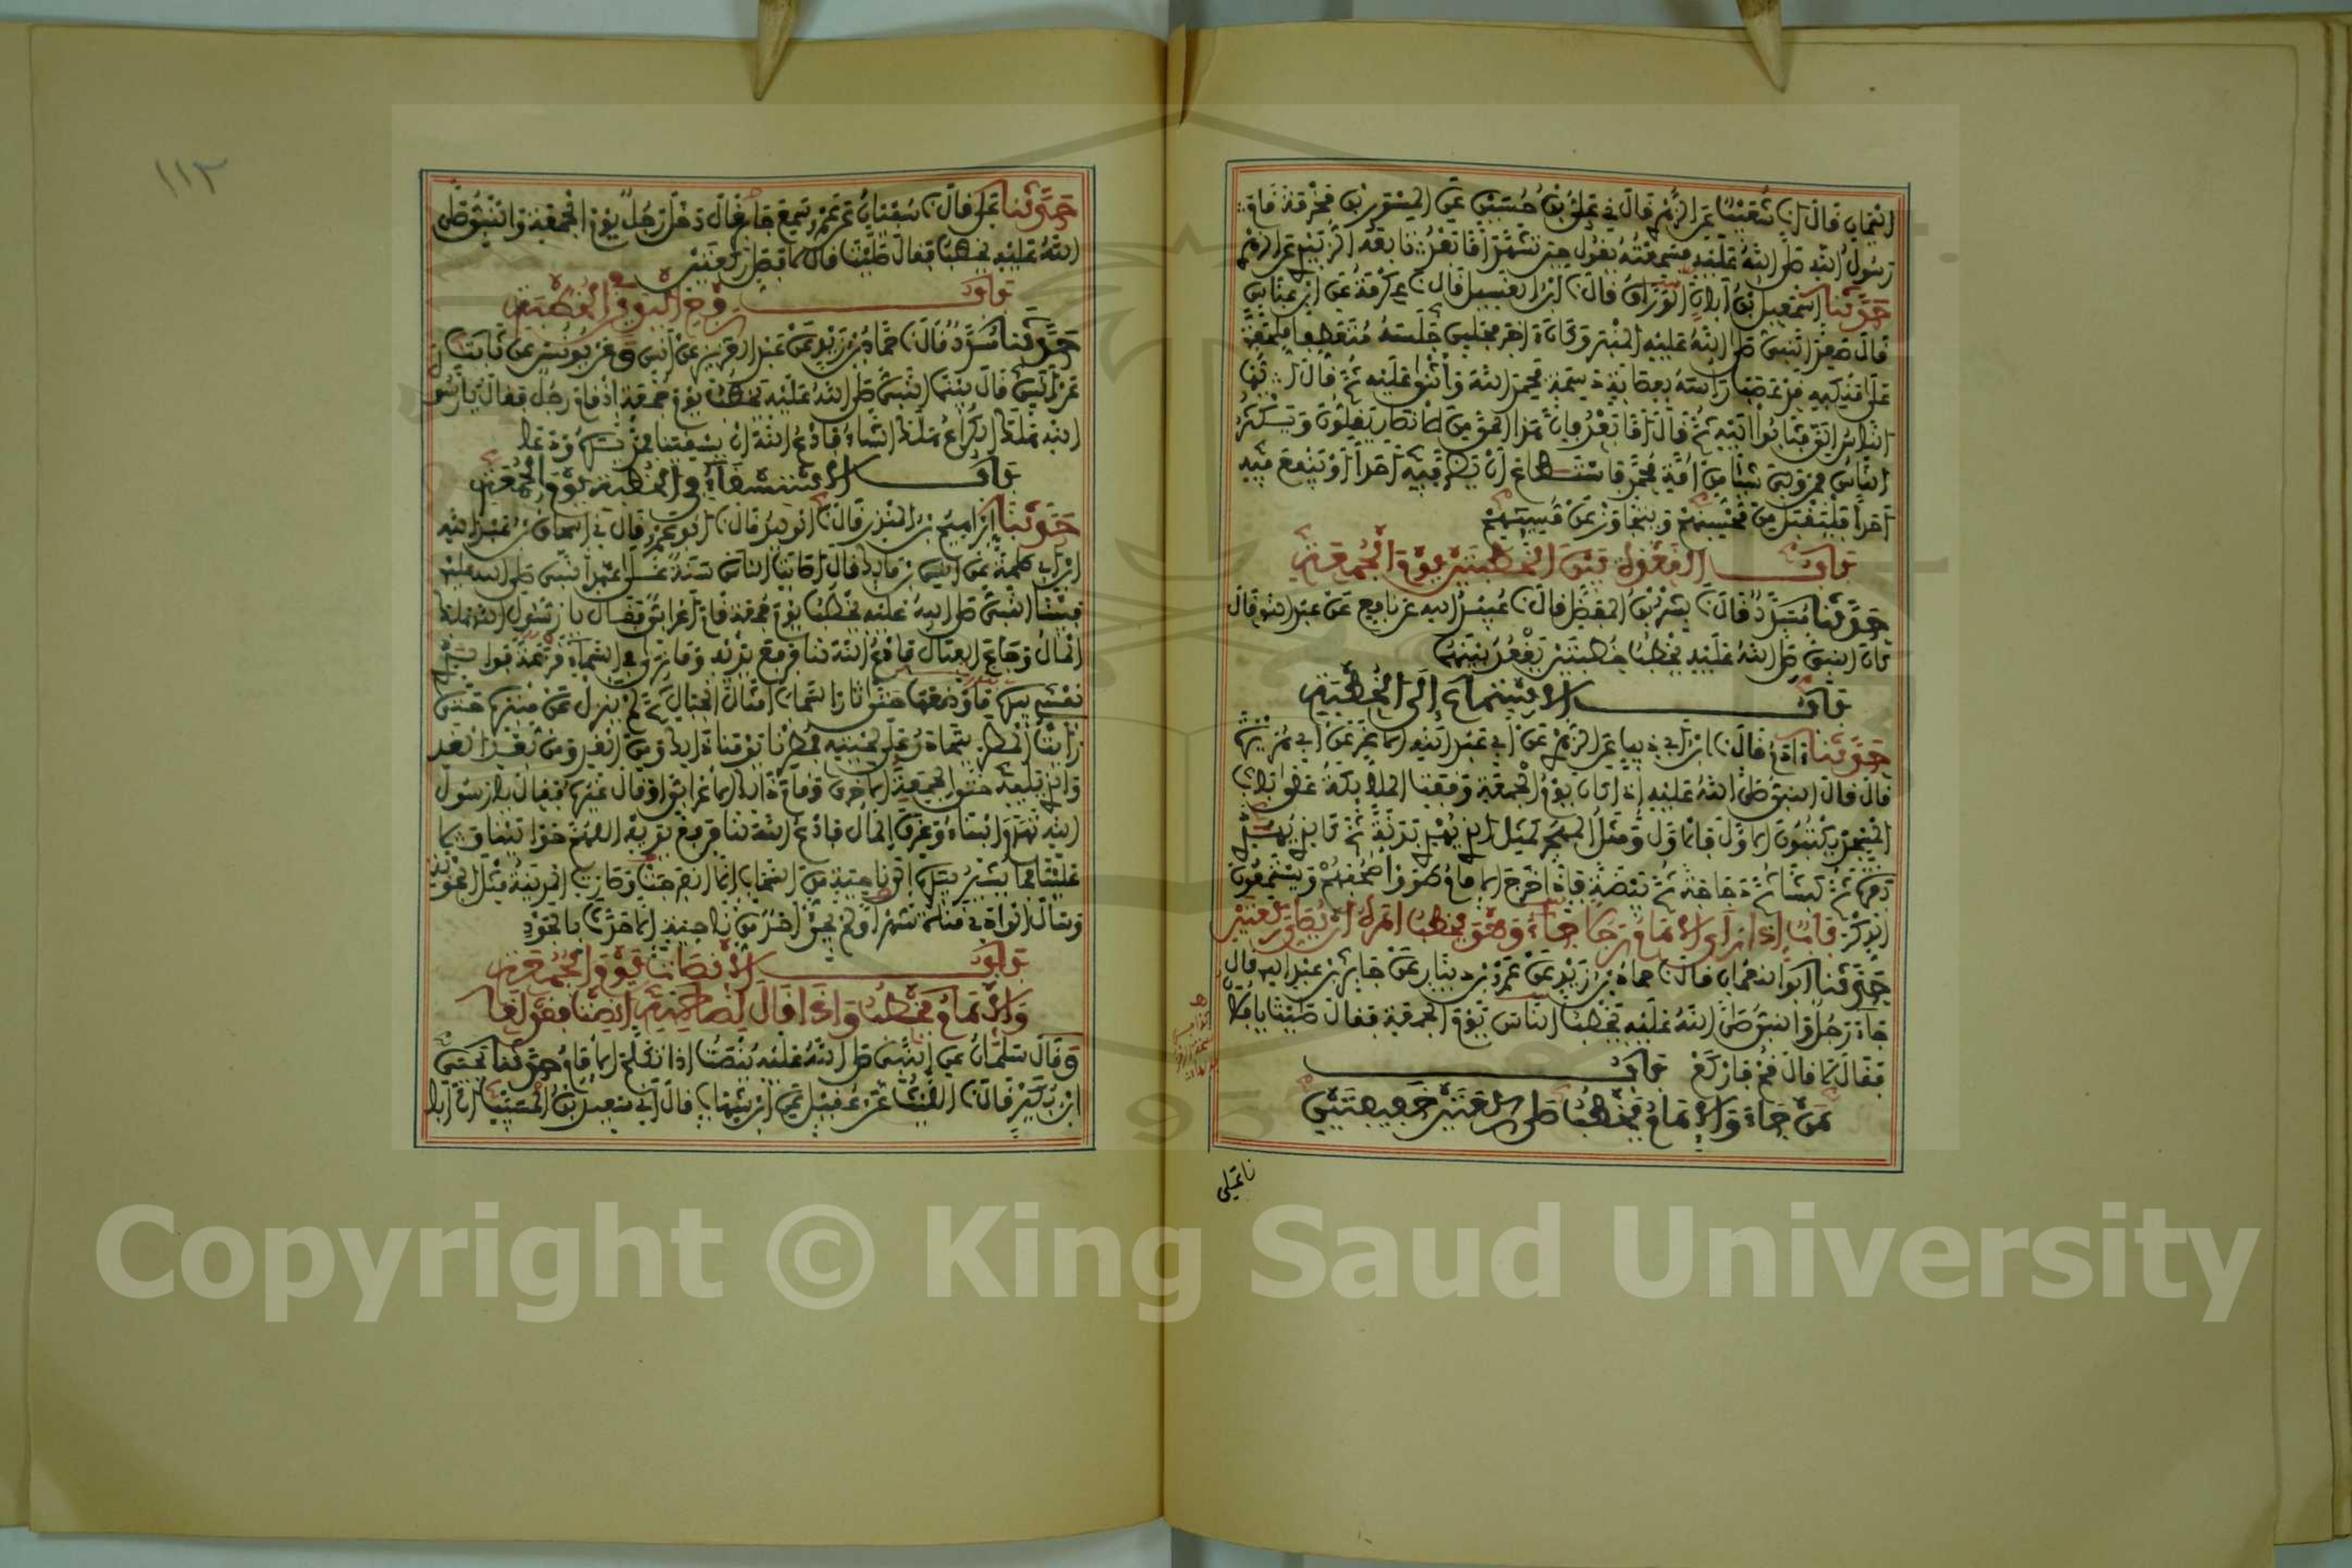 اليمان قال انا شعيب عن الزهري قال ني علي بن حسين عن المسور بن مخرمة قام
رسول الله صلى الله عليه فسمعته يقول حين تشهد أما بعد تابعه الزبيدي عن الزهري
حدثنا اسمعيل بن أبان الوراق قال نا ابن الغسيل قال نا عكرمة عن ابن عباس
قال صعد النبي صلى الله عليه المنبر وكان آخر مجلس جلسه متعطفا ملحفة
على منكبيه قد عصب رأسه بعصابة دسمة فحمد الله وأثنى عليه ثم قال أيها
الناس إلي فثابوا اليه ثم قال أما بعد فإن هذا الحي من الانصار يقلون ويكثر
الناس فمن ولي شيئا من أمة محمد فاستطاع أن يضر فيه أحدا أو ينفع فيه
أحدا فليقبل من محسنهم ويتجاوز عن مسيئهم
باب القعود بين الخطبتين يوم الجمعة
حدثنا مسدد قال نا بشر بن المفضل قال نا عبيد الله عن نافع عن عبد الله قال
كان النبي صلى الله عليه يخطب خطبتين يقعد بينهما
باب الاستماع إلى الخطبة
حدثنا آدم قال نا ابن أبي ذيب عن الزهري عن أبي عبد الله الاغر عن أبي هريرة
قال قال النبي صلى الله عليه إذا كان يوم الجمعة وقفت الملائكة على باب
المسجد يكتبون الاول فالاول ومثل المهجر كمثل الذي يهدي بدنة ثم كالذي يهدي
ثم كبشا ثم دجاجة ثم بيضة فإذا خرج الامام طووا صحفهم ويستمعون
الذكر باب إذا رأى الامام رجلا جاء وهو يخطب أمره أن يصلي ركعتين
حدثنا أبو النعمان قال نا حماد بن زيد عن عمرو بن دينار عن جابر بن عبد الله قال
جاء رجل والنبي صلى الله عليه يخطب الناس يوم الجمعة فقال صليت يا فلان
فقال لا قال قم فاركع باب
من جاء والامام يخطب صلى ركعتين خفيفتين
نا علي
١١٢
حدثنا علي قال نا سفيان عن عمرو سمع جابرا قال دخل رجل يوم الجمعة والنبي صلى
الله عليه يخطب فقال صليت قال لا قال فصل ركعتين
باب رفع اليدين في الخطبة
حدثنا مسدد قال نا حماد بن زيد عن عبد العزيز عن أنس وعن يونس عن ثابت
عن أنس قال بينما النبي صلى الله عليه يخطب يوم جمعة إذ قام رجل فقال يا رسول
الله هلك الكراع هلك الشاء فادع الله أن يسقينا فمد يديه ودعا
باب الاستسقاء في الخطبة يوم الجمعة
حدثنا إبراهيم بن المنذر قال نا الوليد قال نا أبو عمرو قال ني إسحاق بن عبد الله
ابن أبي طلحة عن أنس بن مالك قال أصابت الناس سنة على عهد النبي صلى الله عليه
فبينا النبي صلى الله عليه يخطب يوم جمعة قام أعرابي فقال يا رسول الله هلك
المال وجاع العيال فادع الله لنا فرفع يديه وما نرى في السماء قزعة فوالذي
نفسي بيده ما وضعها حتى ثار السحاب أمثال الجبال ثم لم ينزل عن منبره حتى
رأيت المطر يتحادر على لحيته فمطرنا يومنا ذلك ومن الغد ومن بعد الغد
والذي يليه حتى الجمعة الاخرى وقام ذلك الاعرابي أو قال غيره فقال يا رسول
الله تهدم البناء وغرق المال فادع الله لنا فرفع يديه اللهم حوالينا ولا
علينا فما يشير بيده إلى ناحية من السحاب إلا انفرجت وصارت المدينة مثل الجوبة
وسال الوادي قناة شهرا ولم يجئ أحد من ناحية إلا حدث بالجود
باب الانصات يوم الجمعة
والامام يخطب وإذا قال لصاحبه أنصت فقد لغا
وقال سلمان عن النبي صلى الله عليه ينصت إذا تكلم الامام حدثنا يحيى
ابن بكير قال نا الليث عن عقيل عن ابن شهاب قال أني سعيد بن المسيب أن أبا